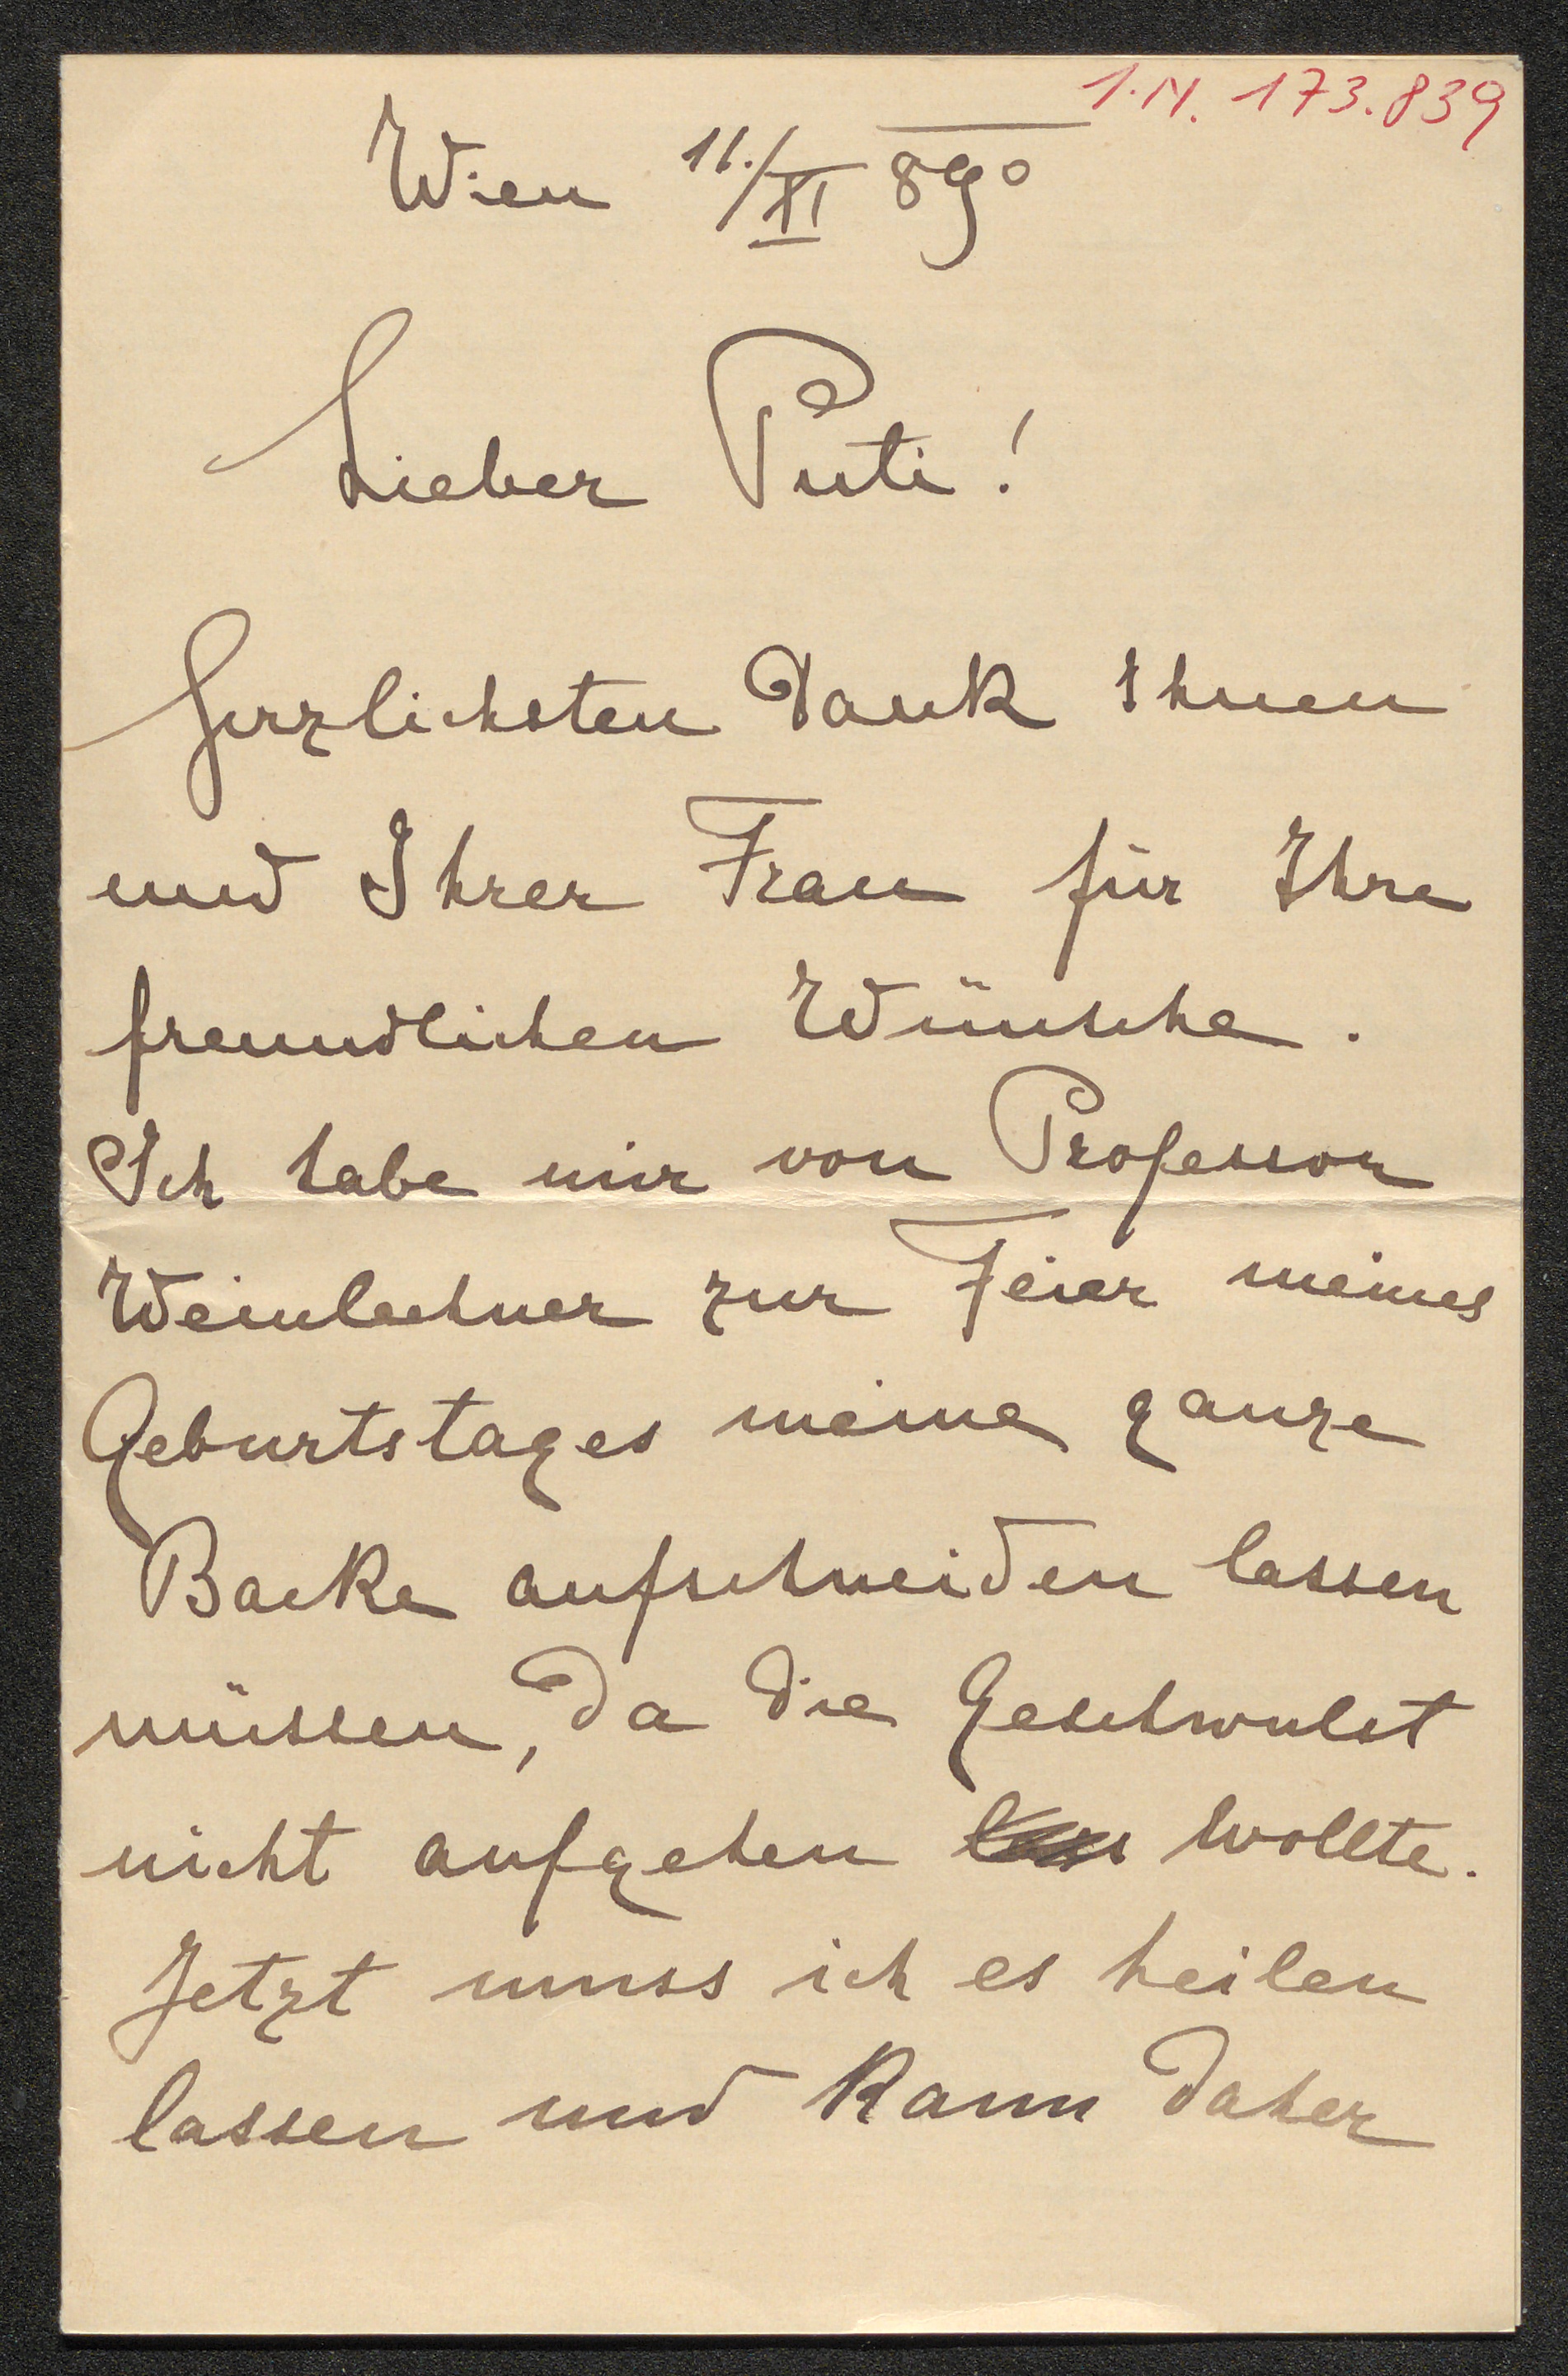 I.N. 173.839
Wien 11./XI 890
Lieber Puti!
Herzlichsten Dank Ihnen
und Ihrer Frau für Ihre
freundlichen Wünsche.
Ich habe mir von Professor
Weinlechner zur Feier meines
Geburtstages meine ganze
Backe aufschneiden lassen
müssen, da die Geschwulst
nicht aufgehen wollte.
Jetzt muss ich es heilen
lassen und kann daher